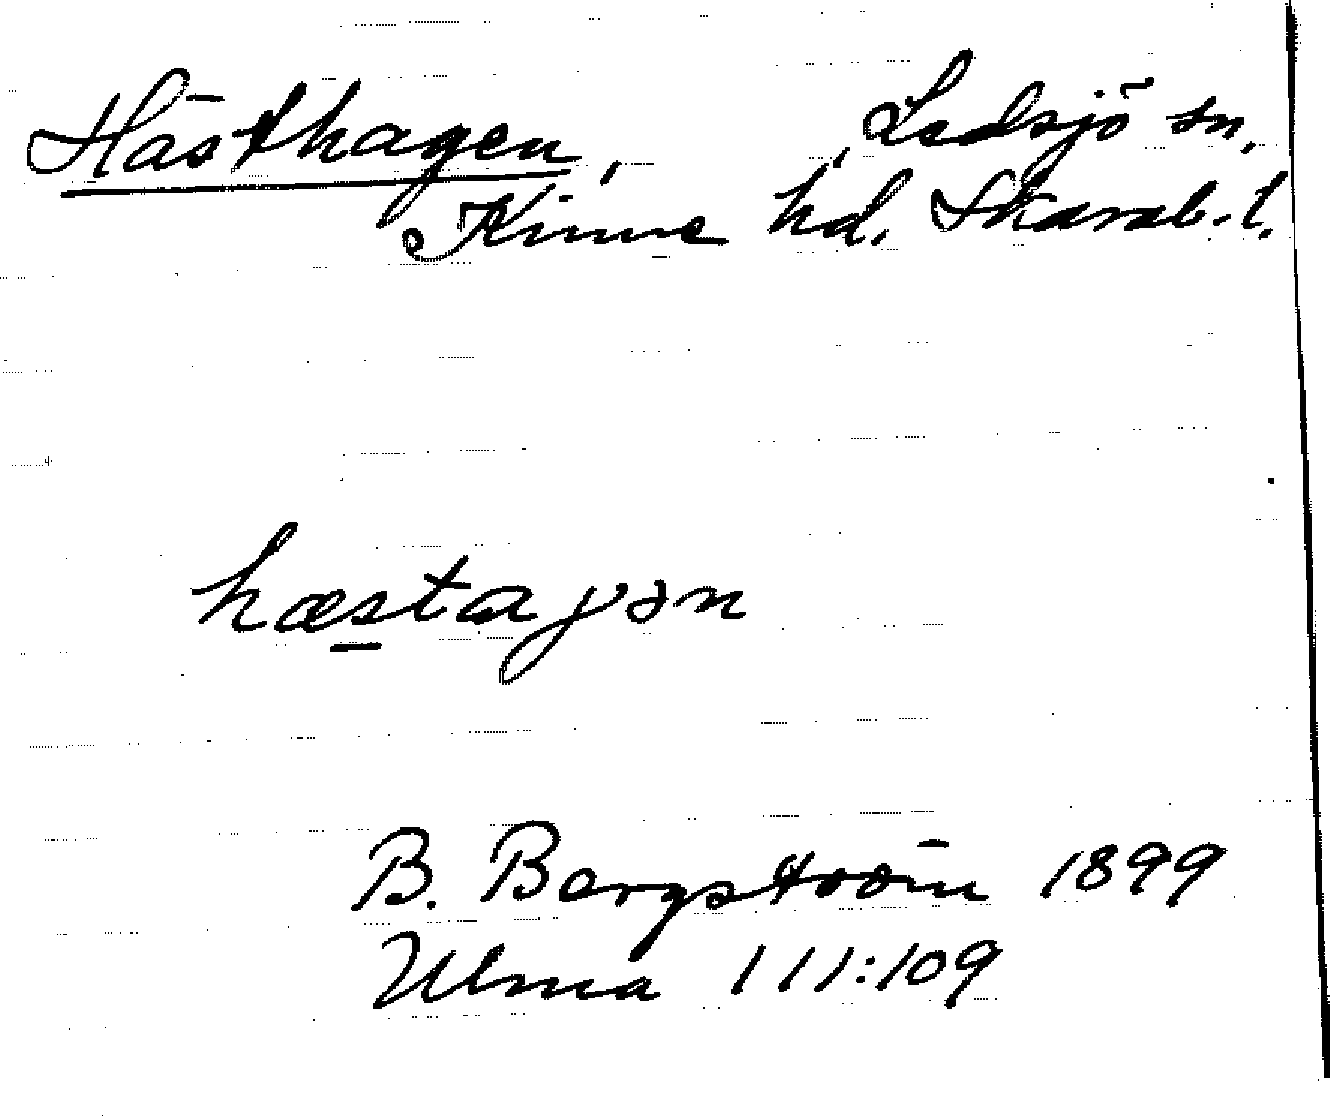 Hästhagen, Ledsjö sn,
Kinne hd. Skarab. l.
hæstaγən
B. Bergström 1899
Ulma 111:109